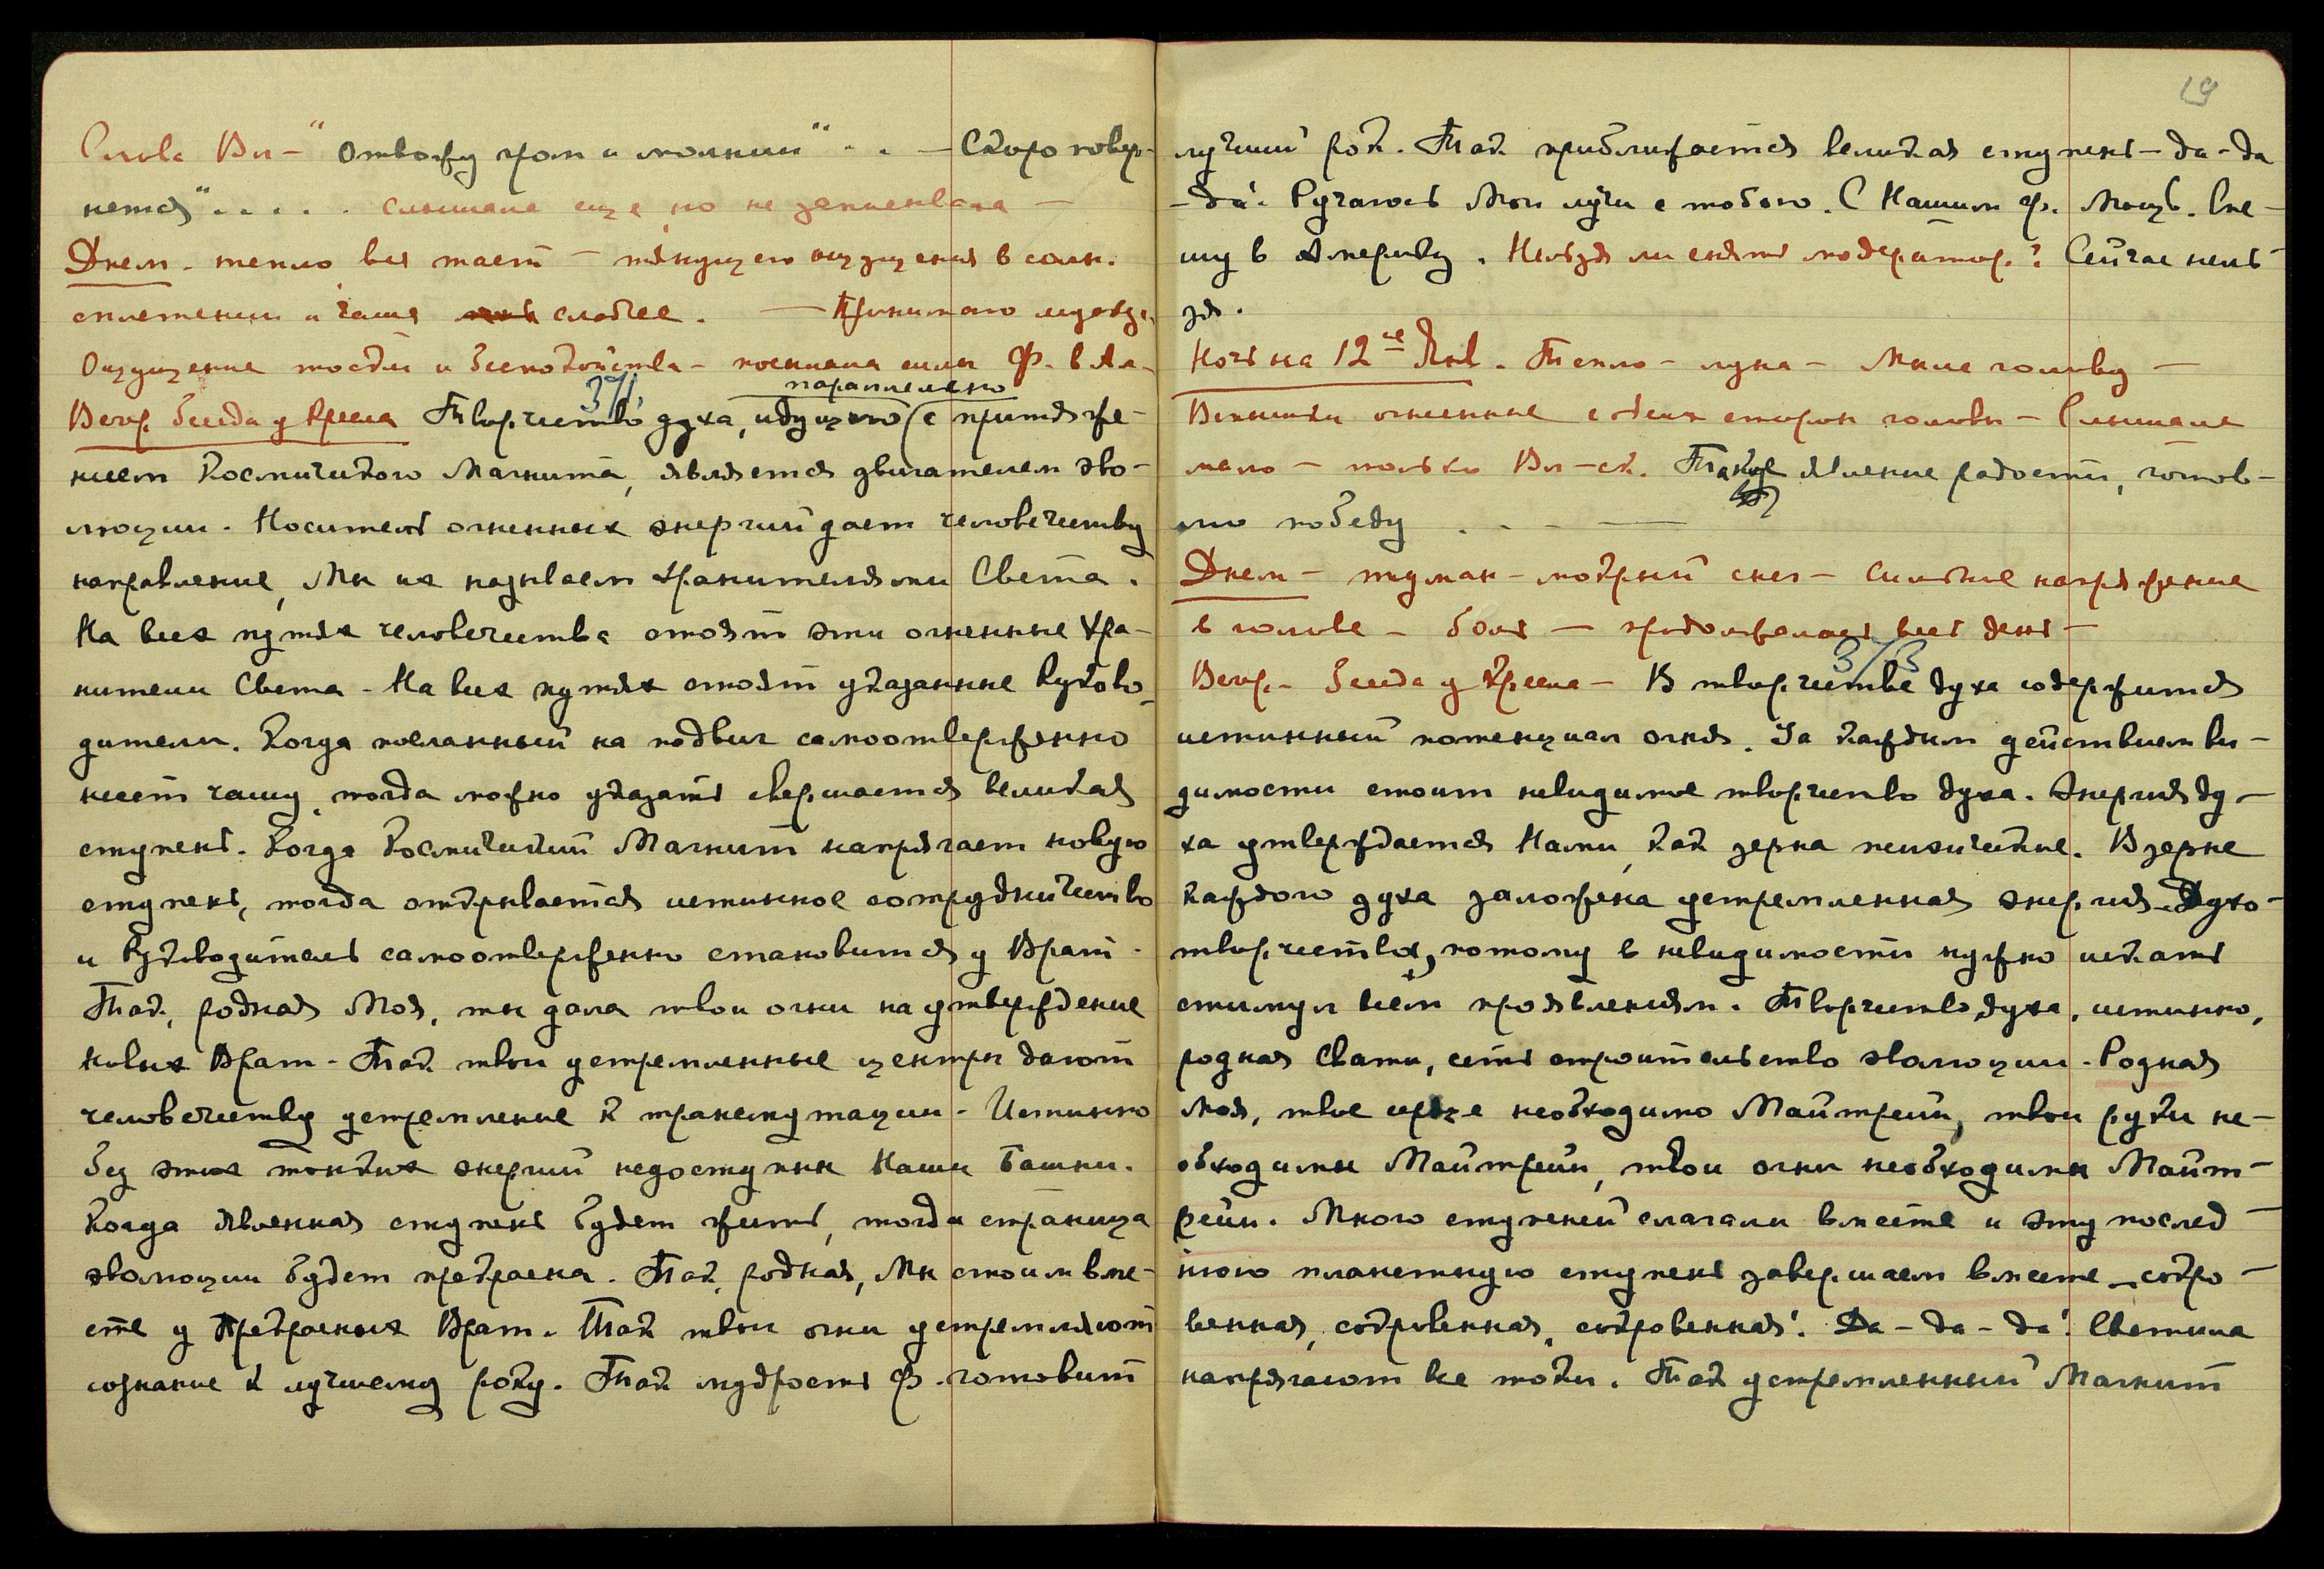 Слова Вл – "Отвожу гром и молнии" . . — Скоро повер-
нется". . . . . слышала еще, но не запомнила —
Днем – тепло, все тает – тянущего ощущения в солн.
сплетении и чаше слабее. — Принимаю
Ощущение тоски и беспокойства – посылала силы Ф. в Ам.
371
параллельно
Вечер. Беседа у Кресла Творчество духа, идущего с притяже-
нием Космического Магнита, является двигателем эво-
люции. Носитель огненных энергий дает человечеству
направление, Мы их называем Хранителями Света.
На всех путях человечества стоят эти огненные Хра-
нители Света – На всех путях стоят указанные Руково-
дители. Когда посланный на подвиг самоотверженно
несет чашу, тогда можно указать свершается великая
ступень. Когда Космический Магнит напрягает новую
ступень, тогда открывается истинное сотрудничество
и Руководитель самоотверженно становится у Врат.
Так, родная Моя, ты дала твои огни на утверждение
новых Врат – Так твои устремленные центры дают
человечеству устремление к трансмутации – Истинно
без этих тонких энергий недоступны Наши Башни.
Когда явленная ступень будет жить, тогда страница
эволюции будет прекрасна. Так, родная, Мы стоим вме-
сте у Прекрасных Врат. Так твои огни устремляют
сознание к лучшему року. Так мудрость Ф. готовит
19
лучший рок. Так приближается великая ступень – да – да
– да! Ручаюсь Мои лучи с тобою. С Нашим Ф. Мощь. Спе-
шу в Америку. Нельзя ли снять модератор? Сейчас нель-
зя.
Ночь на 12ое Янв. Тепло – луна – Мыла голову —
Вспышки огненные с обеих сторон головы – Слышала
мало – только Вл-ск. Такое явление радости, готов-
лю победу . – – —
Днем – туман – мокрый снег – Сильное напряжение
в голове – боля — продолжалась весь день –
373
Вечер. – Беседа у Кресла – В творчестве духа содержится
истинный потенциал огня. За каждым действием ви-
димости стоит невидимое творчество духа. Энергия ду-
ха утверждается Нами, как зерна психические. В зерне
каждого духа заложена устремленная энергия Духо-
творчества, потому в невидимости нужно искать
стимул всем проявлениям. Творчество духа, истинно,
родная Свати, есть строительство эволюции – Родная
Моя, твое сердце необходимо Майтрейи, твои руки не-
обходимы Майтрейи, твои огни необходимы Майт-
рейи. Много ступеней слагали вместе и эту послед-
нюю планетную ступень завершаем вместе – сокро-
венная, сокровенная, сокровенная! Да – да – да! Светила
напрягают все токи. Так устремленный Магнит